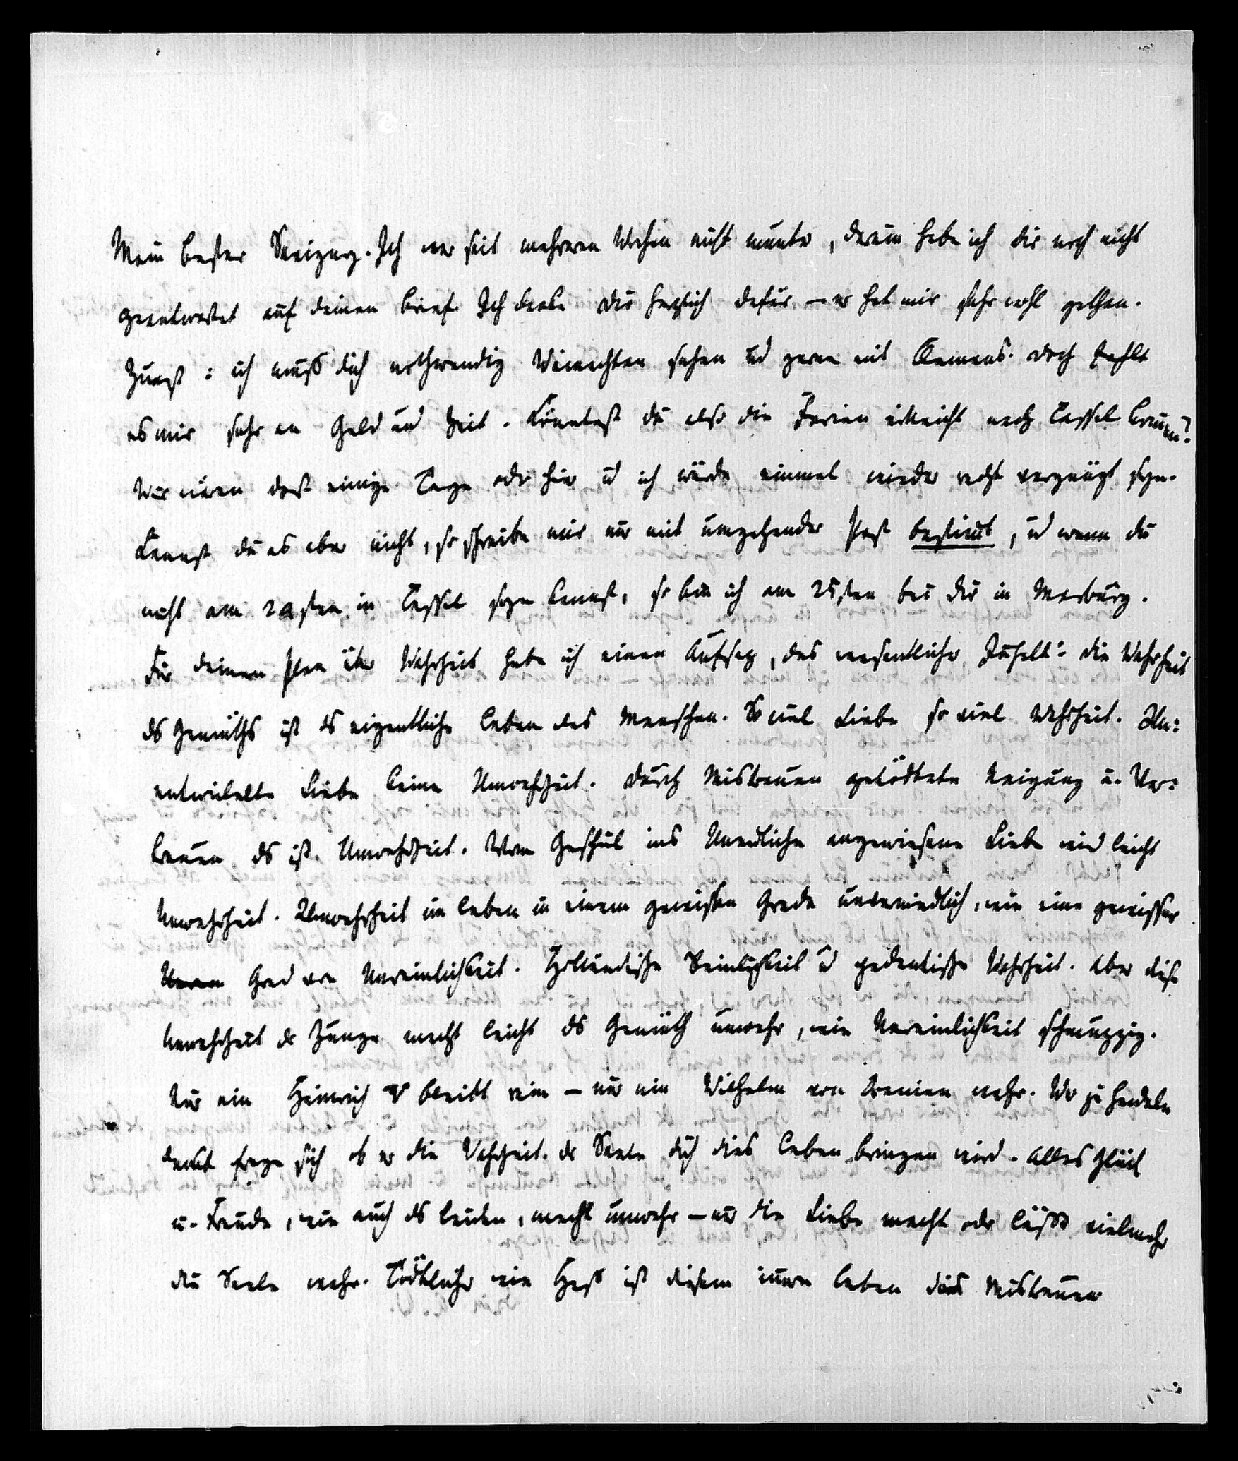 Mein bester Savigny. Ich war seit mehreren Wochen nicht munter, darum habe ich dir noch nicht
geantwortet auf deinen Brief. Ich danke dir herzlich dafür – er hat mir sehr wohl gethan.
Zuerst: ich muß dich nothwendig Weinachten sehen und gerne mit Clemens. doch fehlt
es mir sehr an Geld und Zeit. Könntest du also die Ferien nicht nach Cassel
Wir wären dort einige Tage oder hier u ich würde einmal wieder recht vergnügt seyn.
Kannst du es aber nicht, so schreibe mir nur mit umgehender Post bestimt, u wenn du
nicht am in Cassel seyn kannst, so bin ich am 25sten bei dir in Marburg.
Für deinen Plan über Wahrheit habe ich einen Aufsaz, des wesentlicher Inhalt: die Wahrheit
ds Gemüths ist ds eigentliche Leben des Menschen. So viel Liebe so viel Wahrheit. Un:
entwickelte Liebe keine Unwahrheit. Durch Mistrauen getödtete Neigung u. Ver:
trauen ds ist Unwahrheit. Vom Geschik ins Unendliche angewiesene Liebe wird leicht
Unwahrheit. Unwahrheit im Leben in einem gewissen Grade unvermeidlich, wie eine gewisser
Grad von Unreinlichkeit. Holländische Reinlichkeit u pedantische Wahrheit. Aber diese
Unwahrheit der Zunge macht leicht ds Gemüth unwahr, wie Unreinlichkeit schmuzzig.
Nur ein Heinrich V bleibt rein – nur ein Wilhelm von Oranien wahr. Wer zu handeln
denkt frage sich ob er die Wahrheit der Seele durch dies Leben bringen wird. Alles Glück
u. Freude, wie auch ds Leiden, macht unwahr – nur die Liebe macht oder läßt vielmehr
die Seele wahr. Tödtlicher wie Haß ist diesem innern Leben das Mistrauen